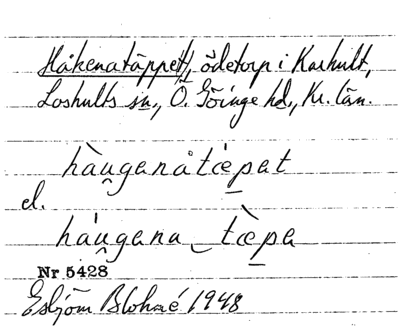 Håkenatäppet, ödetorp i Karhult,
Loshults sn., Ö. Göinge hd., Kr. län.
hàu̯genåtæ̀pet
el.
háu̯gena tæ̀pe
Nr 5428
Esbjörn Blohmé 1948